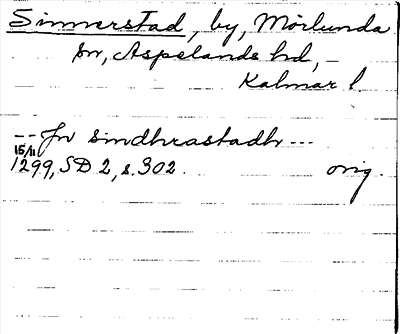 Sinnerstad, by, Mörlunda
sn, Aspelands hd,
Kalmar l.
-- Jn Sindhrastadh ---
15/11
1299, SD 2, s. 302. orig.